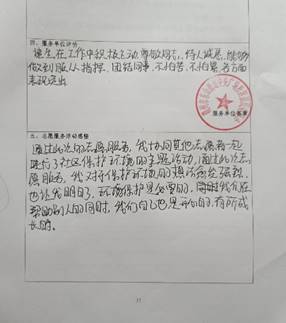 四、服务单位评价
该生在工作中积极主动,尊敬师长,待人诚恳,能够
做到服从指挥,团结同事,不怕苦,不怕累,各方面
表现突出
服务单位盖章
五、志愿服务活动感想
通过此次的志愿服务,我协同其他志愿者一起
进行了社区保护环境的主题活动,通过此次志
愿服务,我对待保护环境的想法愈发强烈,
也让我明白了,环境保护是必要的,同时我们在
帮助别人的同时,我们自己也是开心的,有所成
长的。